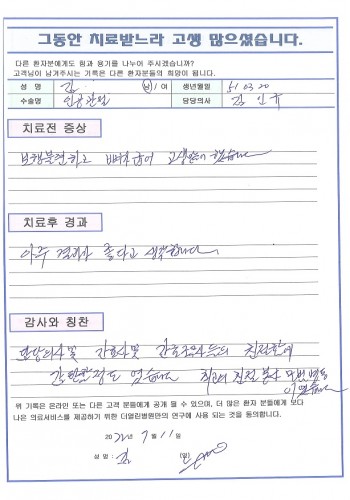 그동안 치료받느라 고생 많으셨습니다.
다른 환자분에게도 힘과 용기를 나누어 주시겠습니까?
고객님이 남겨주시는 기록은 다른 환자분들의 희망이 됩니다.
성 명 김 남 / 여 생년월일 51.03.20
수술명 인공관절 담당의사 김
치료전 증상
보행불편하고 고생많이 했습니다
치료후 경과
아주 경과가 좋다고 생각합니다.
감사와 칭찬
담당의사및 간호사및 간호조무사들의 친절함에
감탄할정도 였습니다 최고의 친절
위 기록은 온라인 또는 다른 고객 분들에게 공개 될 수 있으며, 더 많은 환자 분들에게 보다
나은 의료서비스를 제공하기 위한 더열린병원만의 연구에 사용 되는 것을 동의합니다.
2022년 7월 11일
성 명 : 김 (인)